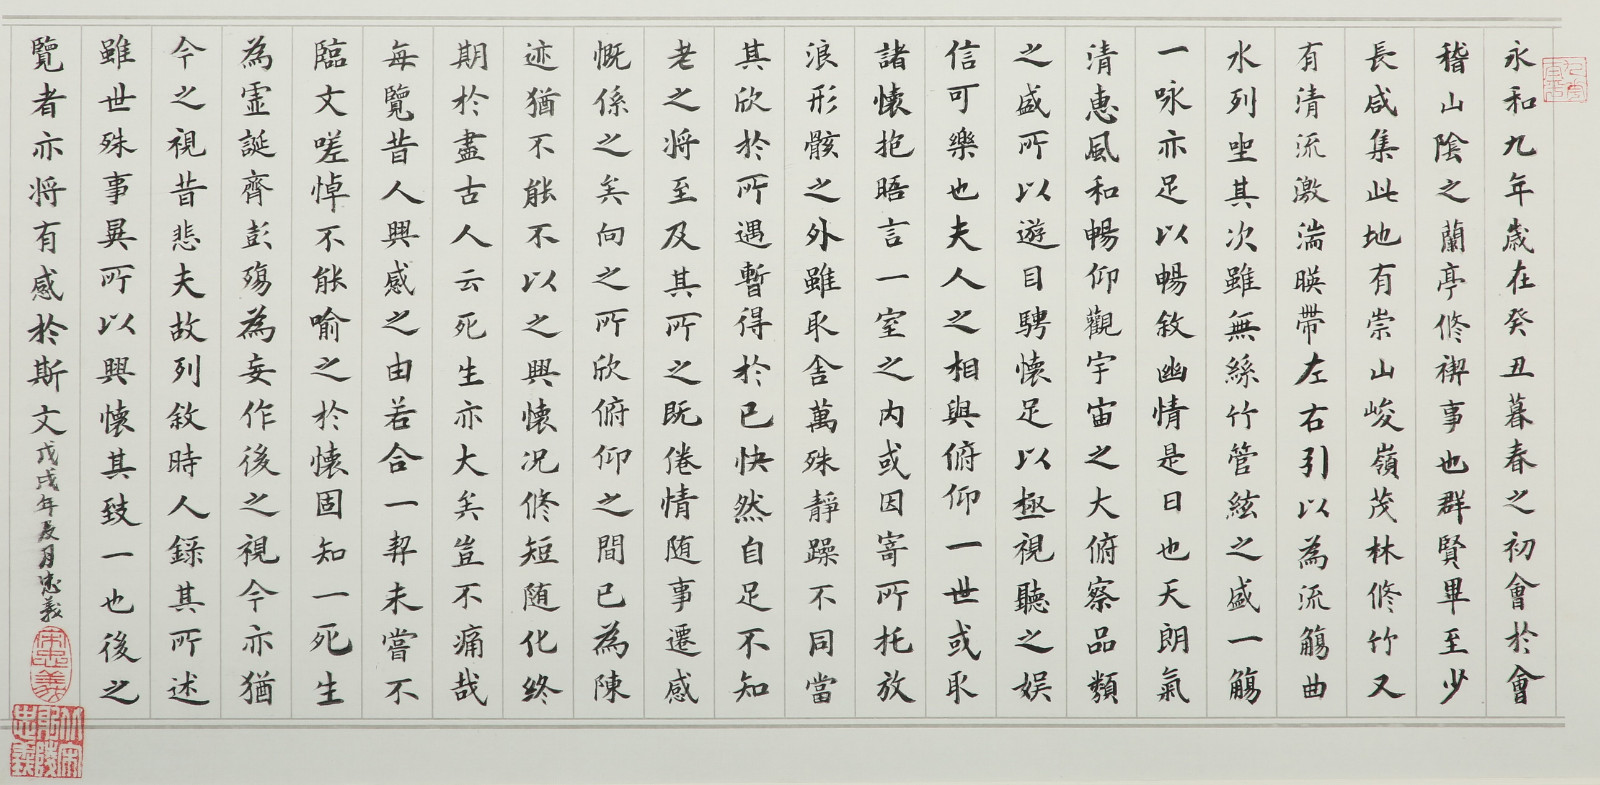 永和九年歲在癸丑暮春之初會於會
稽山陰之蘭亭修禊事也群賢畢至少
長咸集此地有崇山峻嶺茂林修竹又
有清流激湍暎帶左右引以為流觴曲
水列坐其次雖無絲竹管絃之盛一觴
一咏亦足以暢敘幽情是日也天朗氣
清惠風和暢仰觀宇宙之大俯察品類
之盛所以遊目騁懷足以極視聽之娛
信可樂也夫人之相與俯仰一世或取
諸懷抱晤言一室之內或因寄所托放
浪形骸之外雖取舍萬殊靜躁不同當
其欣於所遇暫得於己快然自足不知
老之將至及其所之既倦情随事遷感
慨係之矣向之所欣俯仰之間已為陳
迹猶不能不以之興懷況修短随化終
期於盡古人云死生亦大矣豈不痛哉
每覽昔人興感之由若合一契未嘗不
臨文嗟悼不能喻之於懷固知一死生
為虛誕齊彭殤為妄作後之視今亦猶
今之視昔悲夫故列敘時人錄其所述
雖世殊事異所以興懷其致一也後之
覽者亦將有感於斯文戊戌年夏月忠義
宋忠義